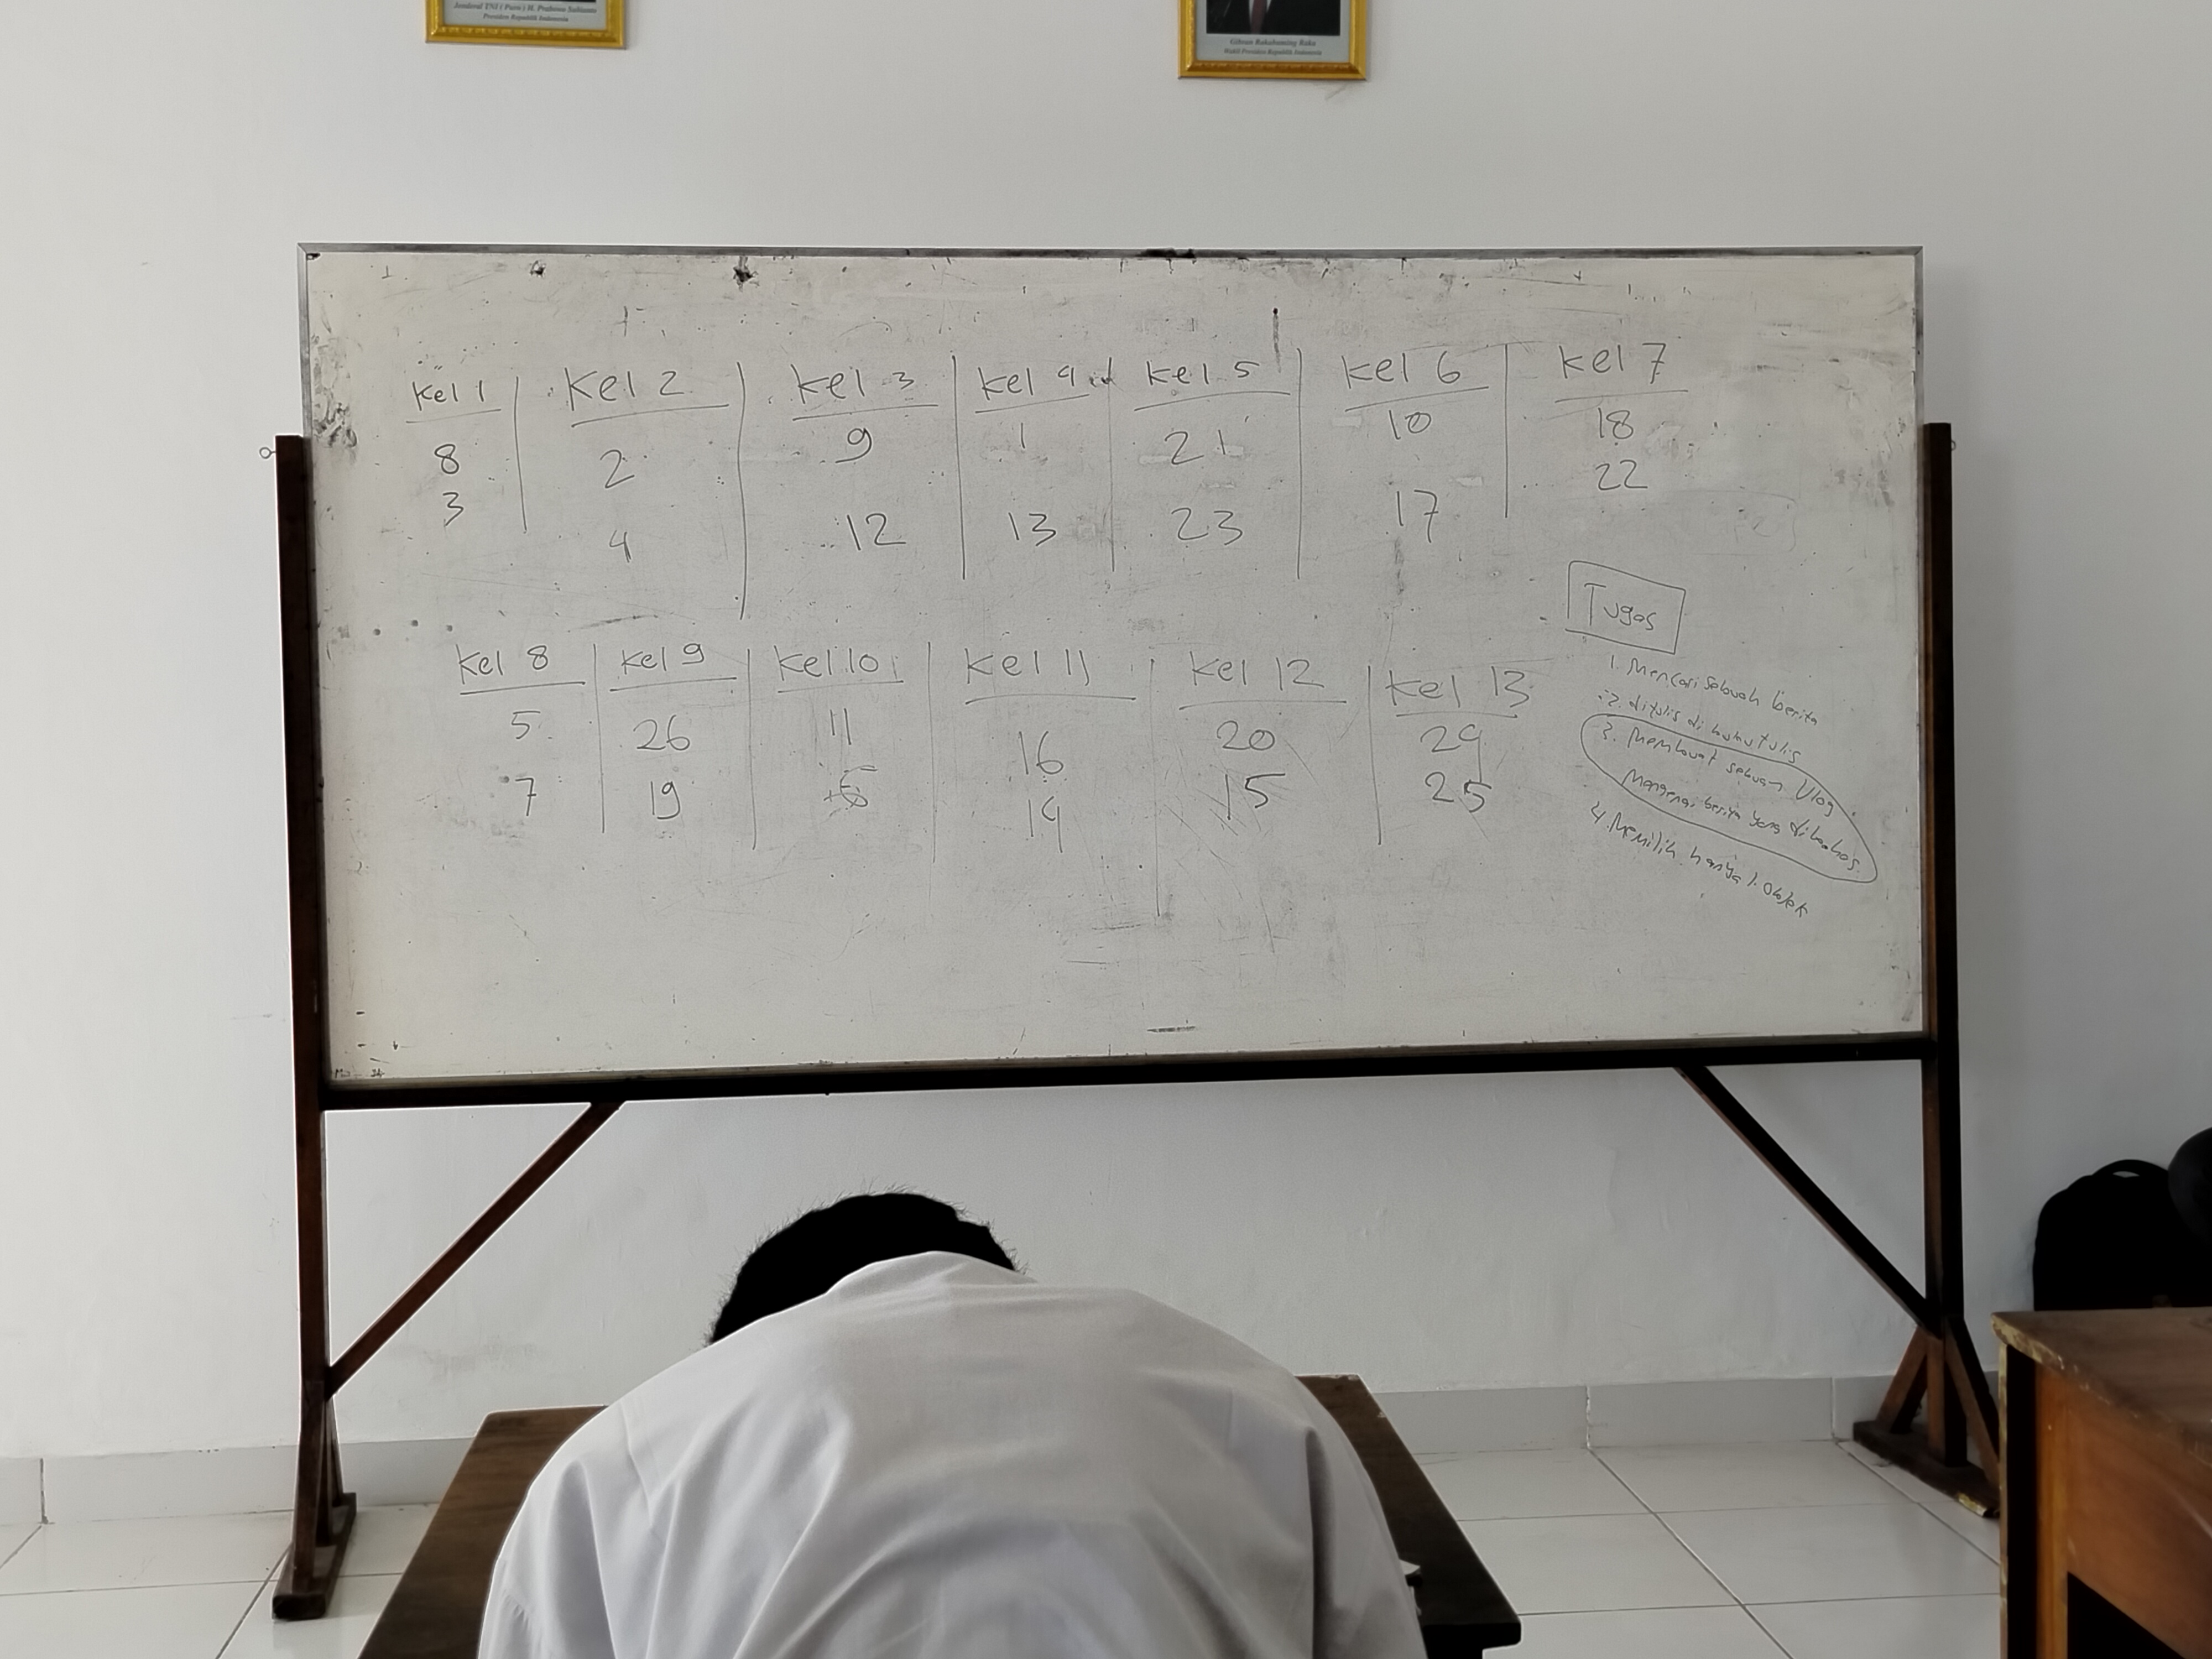 Jenderal TNI (Purn) H. Prabowo Subianto
Presiden Republik Indonesia
Gibran Rakabuming Raka
Wakil Presiden Republik Indonesia
Kel 1
8
3
Kel 2
2
4
Kel 3
9
12
Kel 4
1
13
Kel 5
21
23
Kel 6
10
17
Kel 7
18
22
Kel 8
5
7
Kel 9
26
19
Kel 10
11
6
Kel 11
16
14
Kel 12
20
15
Kel 13
24
25
Tugas
1. Mencari sebuah berita
2. ditulis di buku tulis
3. Membuat sebuah Vlog
Mengenai berita yang dibahas
4. Memilih hanya 1 Objek